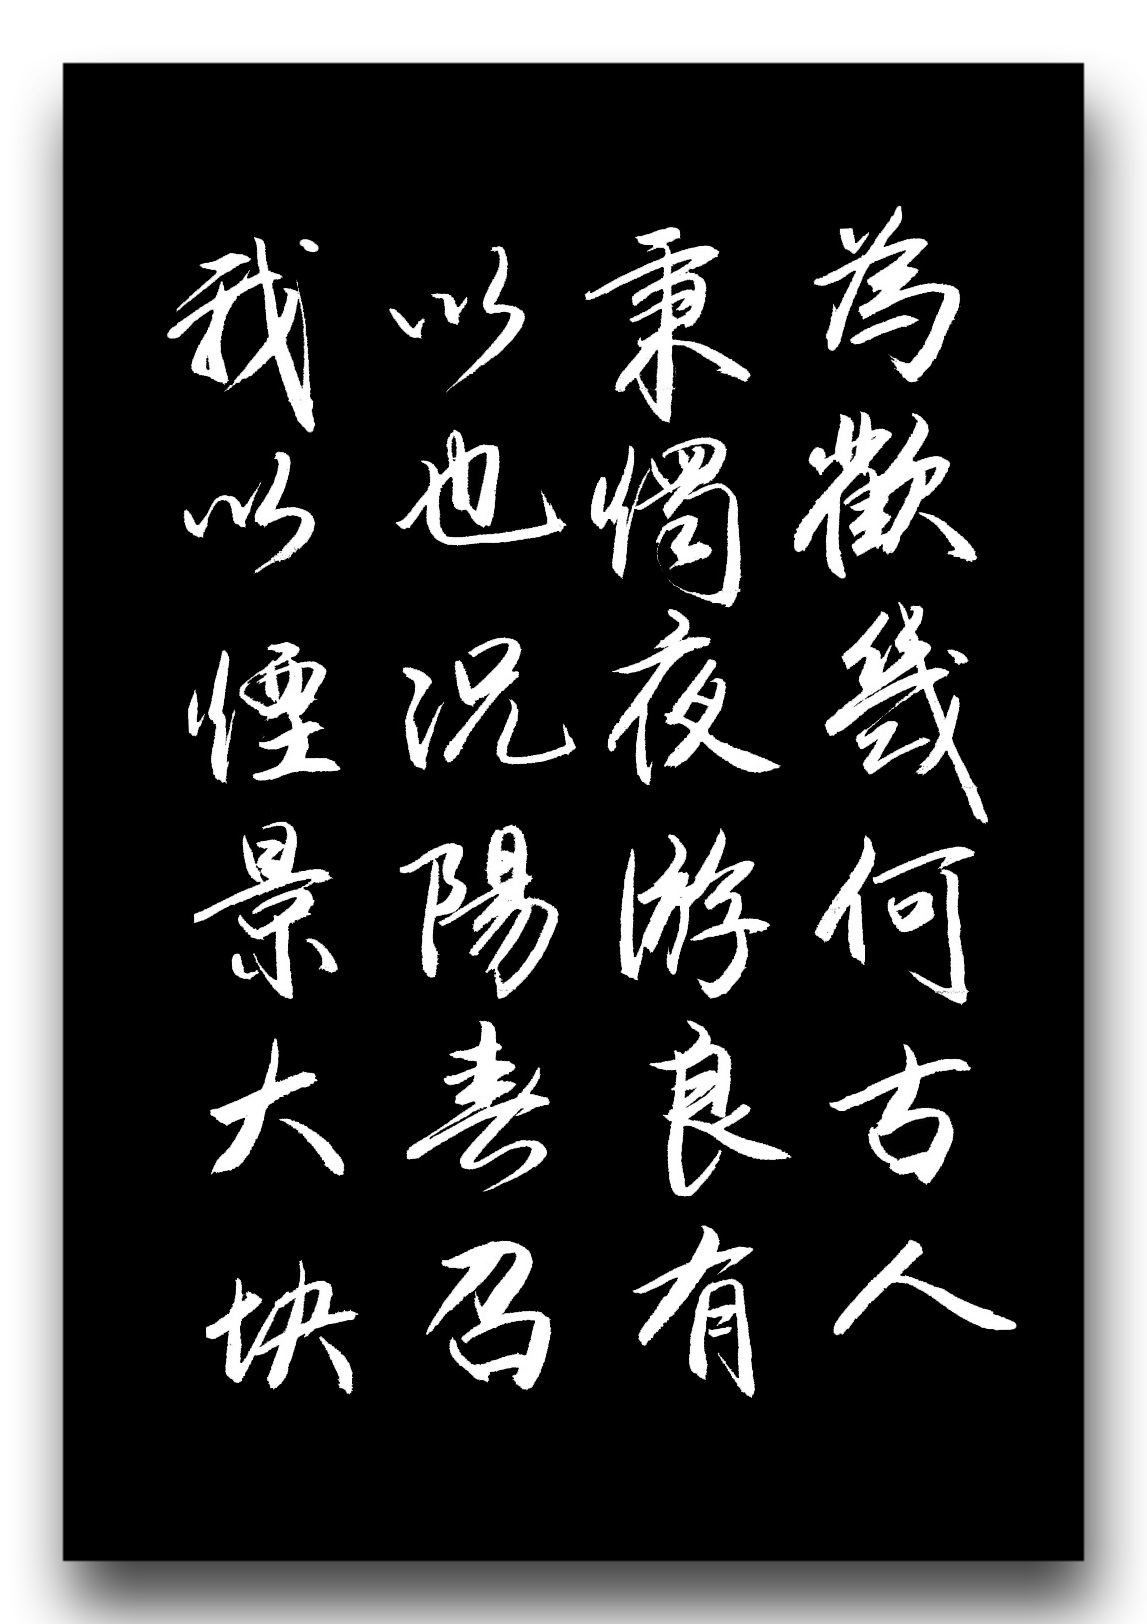 為歡幾何古人
秉燭夜游良有
以也況陽春召
我以煙景大塊